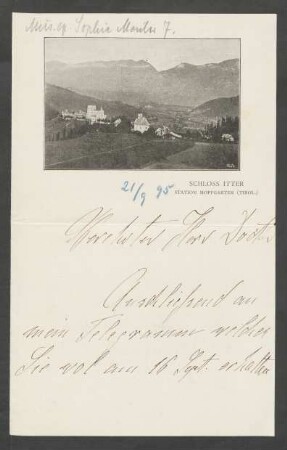 Sophie Menter 7.
SCHLOSS ITTER
STATION HOPFGARTEN (TIROL.)
21/9 95
Verehrter Herr Doctor
Anschließend an
mein Telegramm welches
Sie wol am 16 Sept. erhalten